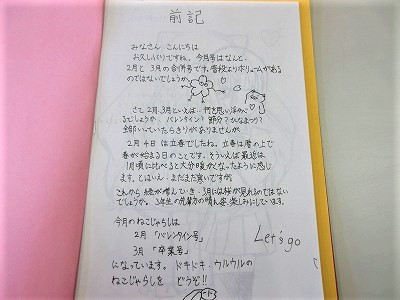 前記
みなさん こんにちは
お久しぶりですね。今月号はなんと、
2月と3月の合併号です。普段よりボリュームがある
のではないでしょうか。
さて2月、3月といえば、何を思い浮かべ
るでしょうか。バレンタイン?節分?ひなまつり?
全部いっていたらきりがありませんが
2月4日は立春でしたね。立春は暦の上で
春が始まる日のことです。そういえば最近は
1月頃に比べると大分暖かくなったように感じ
ます。とはいえ、まだまだ寒いですが。
これから 桜が咲いていき、3月には桜が見れるのではない
でしょうか。3年生の先輩方の晴れ姿、楽しみにしています。
今月のねこじゃらしは
2月「バレンタイン号」
3月「卒業号」
Let's go
になっています。ドキドキ・ウルウルの
ねこじゃらしを どうぞ!!